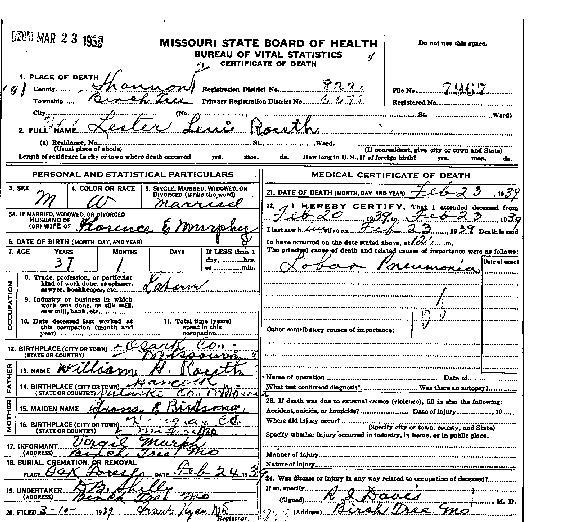 MAR 23
MISSOURI STATE BOARD OF HEALTH
BUREAU OF VITAL STATISTICS
CERTIFICATE OF DEATH
Do not use this space.
1. PLACE OF DEATH
County Shannon Registration District No. File No. 7967
Township Birch Tree Primary Registration District No. Registered No.
City (No. St. Ward)
2. FULL NAME Lester Lewis Routh
(a) Residence, No. St. Ward.
(Usual place of abode) (If nonresident, give city or town and State)
Length of residence in city or town where death occurred yrs. mos. ds. How long in U. S., if of foreign birth? yrs. mos. ds.
PERSONAL AND STATISTICAL PARTICULARS
3. SEX M
4. COLOR OR RACE W
5. SINGLE, MARRIED, WIDOWED, OR DIVORCED (write the word) Married
5A. IF MARRIED, WIDOWED, OR DIVORCED
HUSBAND OF
(OR) WIFE OF Florence E Murphy
6. DATE OF BIRTH (MONTH, DAY, AND YEAR)
7. AGE YEARS 37 MONTHS 1 DAYS If LESS than 1 day, hrs. or min.
OCCUPATION
8. Trade, profession, or particular kind of work done, as spinner, sawyer, bookkeeper, etc.
9. Industry or business in which work was done, as silk mill, saw mill, bank, etc.
10. Date deceased last worked at this occupation (month and year)
11. Total time (years) spent in this occupation
12. BIRTHPLACE (CITY OR TOWN) Clark Co.
(STATE OR COUNTRY) Missouri
FATHER
13. NAME William H. Routh
14. BIRTHPLACE (CITY OR TOWN)
(STATE OR COUNTRY)
MOTHER
15. MAIDEN NAME
16. BIRTHPLACE (CITY OR TOWN) Co
(STATE OR COUNTRY)
17. INFORMANT Virgil Murphy
(ADDRESS) Birch Tree Mo
18. BURIAL, CREMATION, OR REMOVAL
PLACE Oak Forest DATE Feb 24 1939
19. UNDERTAKER
(ADDRESS) Mo
20. FILED 3-10- 1939
Registrar
MEDICAL CERTIFICATE OF DEATH
21. DATE OF DEATH (MONTH, DAY, AND YEAR) Feb 23 1939
22. I HEREBY CERTIFY, That I attended deceased from
Feb 20 1939, to Feb 23 1939
I last saw him alive on Feb 23 1939 Death is said
to have occurred on the date stated above, at m.
The principal cause of death and related causes of importance were as follows:
Date of onset
Lobar Pneumonia
Other contributory causes of importance:
Name of operation Date of
What test confirmed diagnosis? Was there an autopsy?
23. If death was due to external causes (violence), fill in also the following:
Accident, suicide, or homicide? Date of injury 19
Where did injury occur?
(Specify city or town, county, and State)
Specify whether injury occurred in industry, in home, or in public place.
Manner of injury
Nature of injury
24. Was disease or injury in any way related to occupation of deceased?
If so, specify
(Signed) Davis M. D.
(Address) Birch Tree Mo